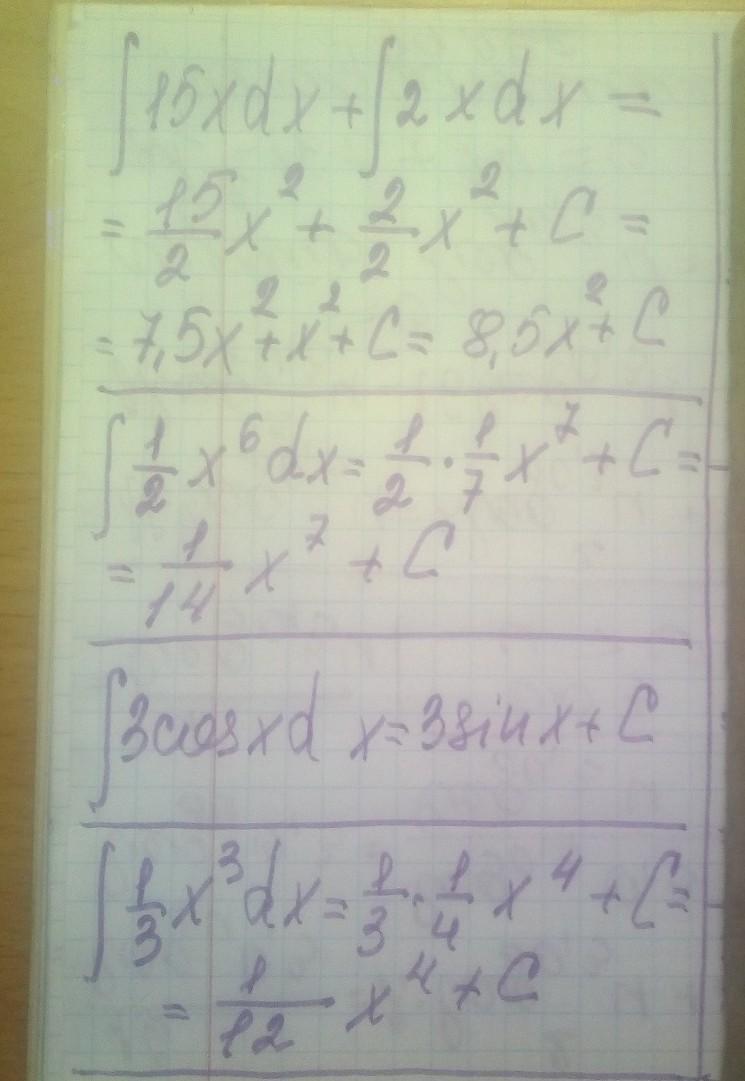 ∫15xdx + ∫2xdx =
= 15/2 x² + 2/2 x² + C =
= 7,5x² + x² + C = 8,5x² + C
∫ 1/2 x⁶dx = 1/2 · 1/7 x⁷ + C =
= 1/14 x⁷ + C
∫3cosxd x = 3sinx + C
∫ 1/3 x³dx = 1/3 · 1/4 x⁴ + C =
= 1/12 x⁴ + C